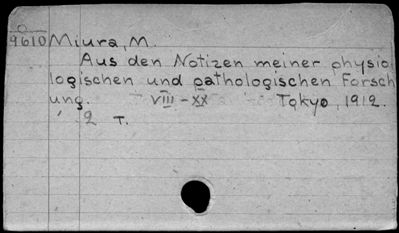 9610 Miura, M.
Aus den Notizen meiner physio
logischen und pathologischen Forsch
ung. VIII - XX Tokyo, 1912.
2 T.